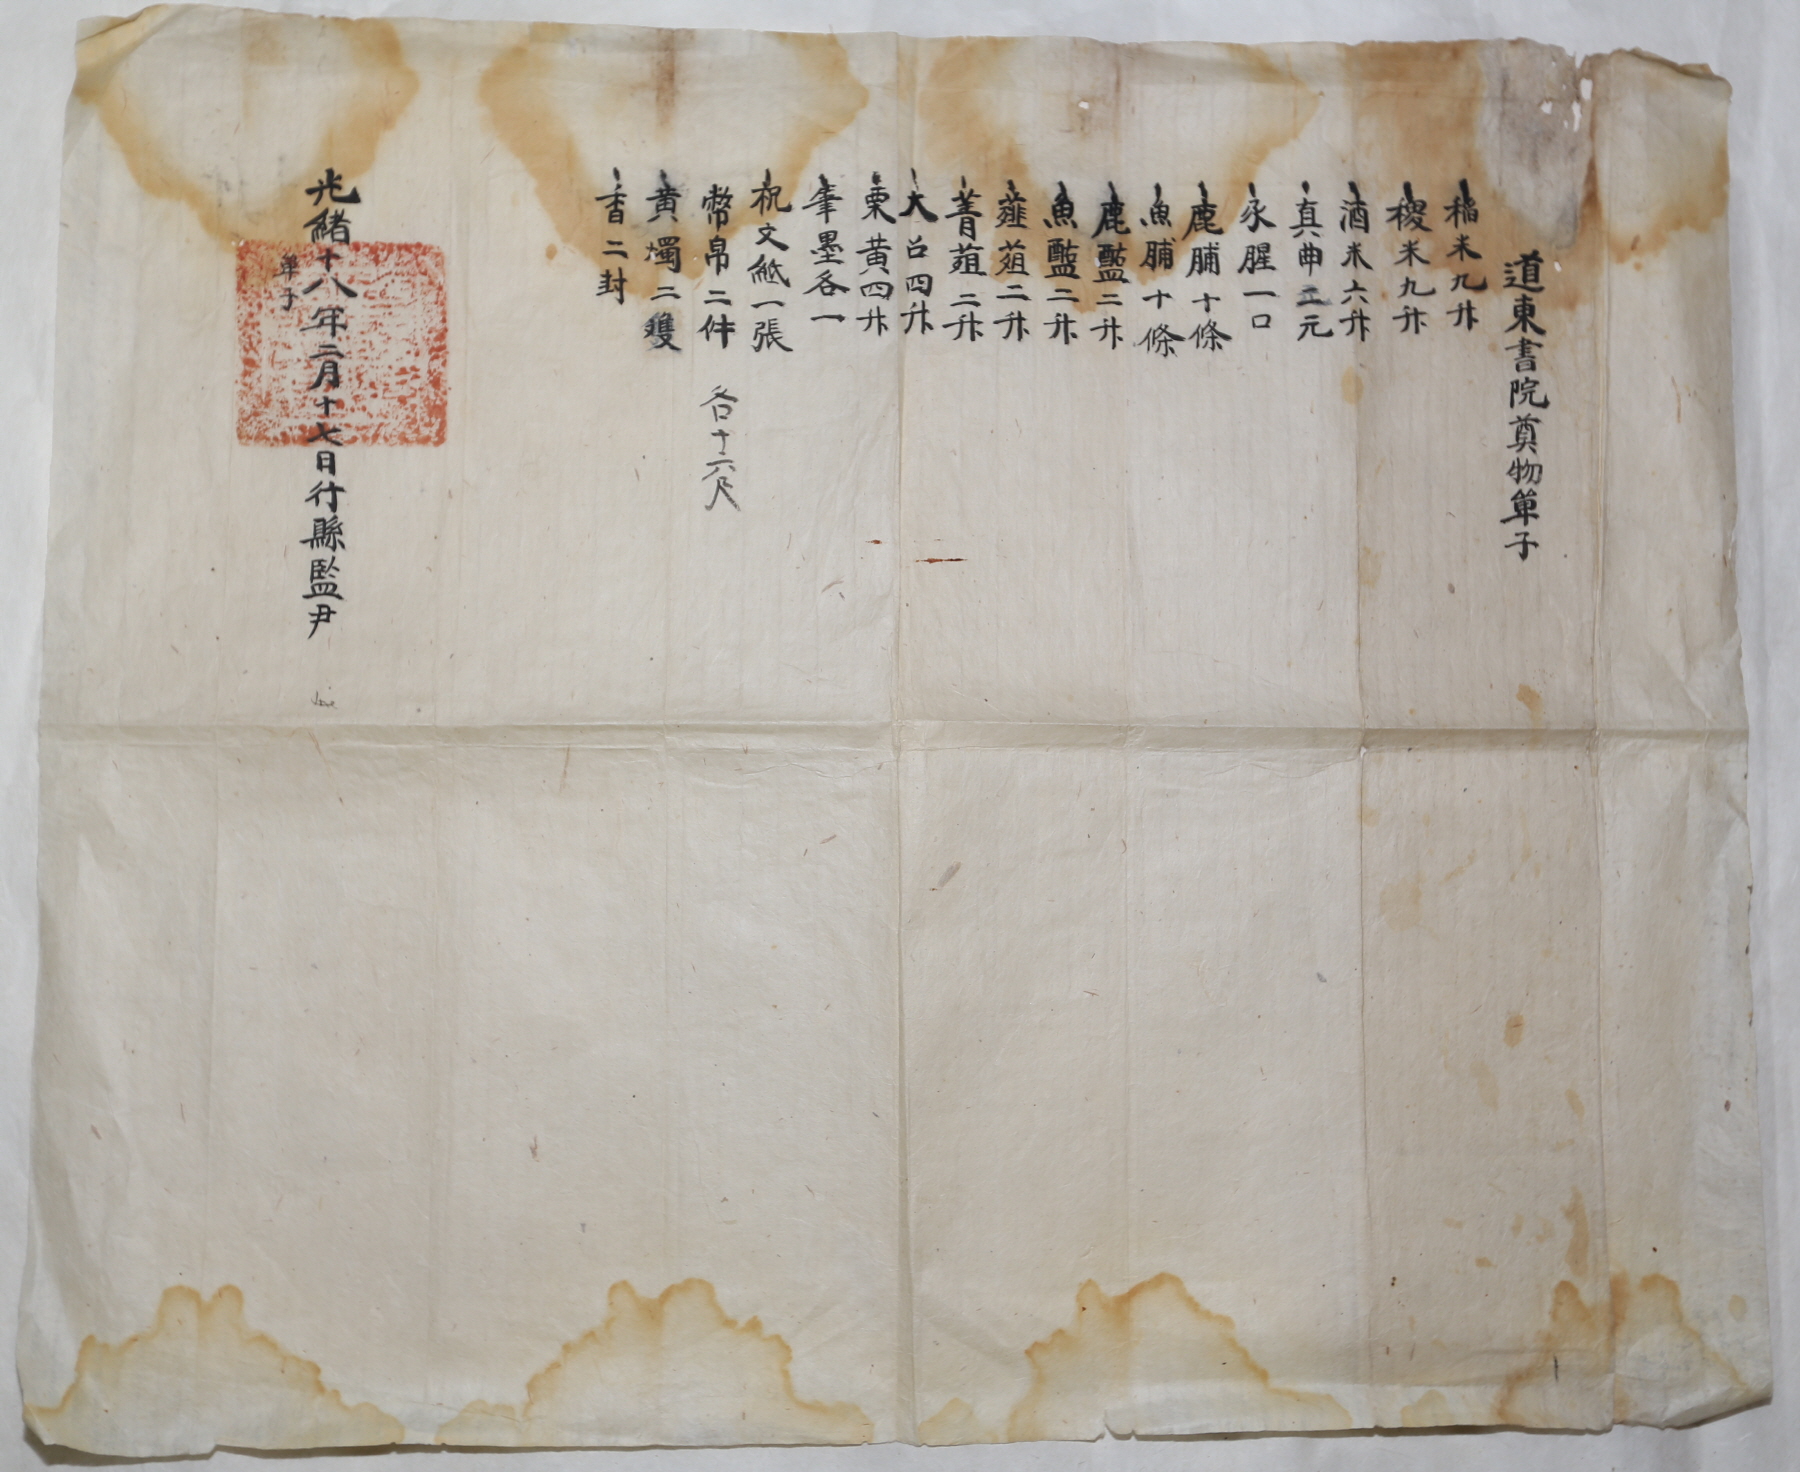 道東書院奠物單子
稻米九升
稷米九升
酒米六升
真曲二元
永腥一口
鹿脯十條
魚脯十條
鹿醢二升
魚醢二升
薤葅二升
菁葅二升
大召四升
栗黃四升
筆墨各一
祝文紙一張
幣帛二件 各十六尺
黃燭二雙
香二封
光緖十八年二月十七日行縣監尹
單子